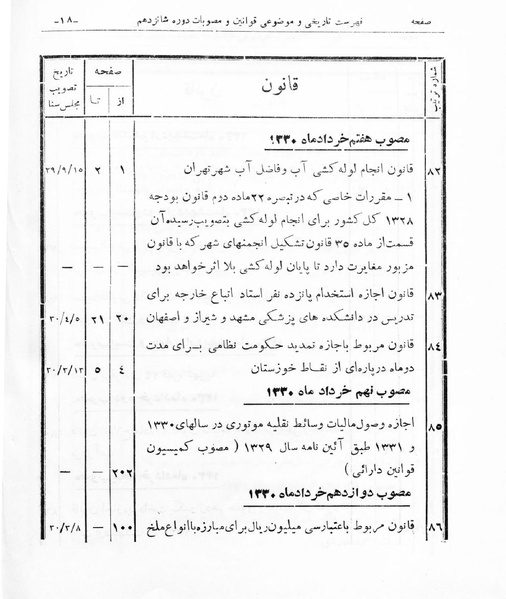 صفحه فهرست تاریخی و موضوعی قوانین و مصوبات دوره شانزدهم -۱۸-
شماره ترتیب قانون صفحه تاریخ تصویب مجلس سنا
از تا
مصوب هفتم خرداد ماه ۱۳۳۰
۸۲ قانون انجام لوله کشی آب و فاضل آب شهر تهران ۱ ۲ ۲۹/۹/۱۵
۱ ـ مقررات خاصی که در تبصره ۲۲ ماده دوم قانون بودجه
۱۳۲۸ کل کشور برای انجام لوله کشی بتصویب رسیده آن
قسمت از ماده ۳۵ قانون تشکیل انجمنهای شهر که با قانون
مزبور مغایرت دارد تا پایان لوله کشی بلا اثر خواهد بود — — —
۸۳ قانون اجازه استخدام پانزده نفر استاد اتباع خارجه برای
تدریس در دانشکده های پزشکی مشهد و شیراز و اصفهان ۲۰ ۲۱ ۳۰/۴/۵
۸۴ قانون مربوط باجازه تمدید حکومت نظامی برای مدت
دوماه در پاره‌ای از نقاط خوزستان ۴ ۵ ۳۰/۳/۱۳
مصوب نهم خرداد ماه ۱۳۳۰
۸۵ اجازه وصول مالیات وسائط نقلیه موتوری در سالهای ۱۳۳۰
و ۱۳۳۱ طبق آئین نامه سال ۱۳۲۹ ( مصوب کمیسیون
قوانین دارائی ) ۲۰۲ — —
مصوب دوازدهم خرداد ماه ۱۳۳۰
۸۶ قانون مربوط باعتبار سی میلیون ریال برای مبارزه با انواع ملخ ۱۰۰ — ۳۰/۳/۸